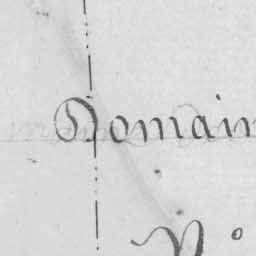 Domain
N°